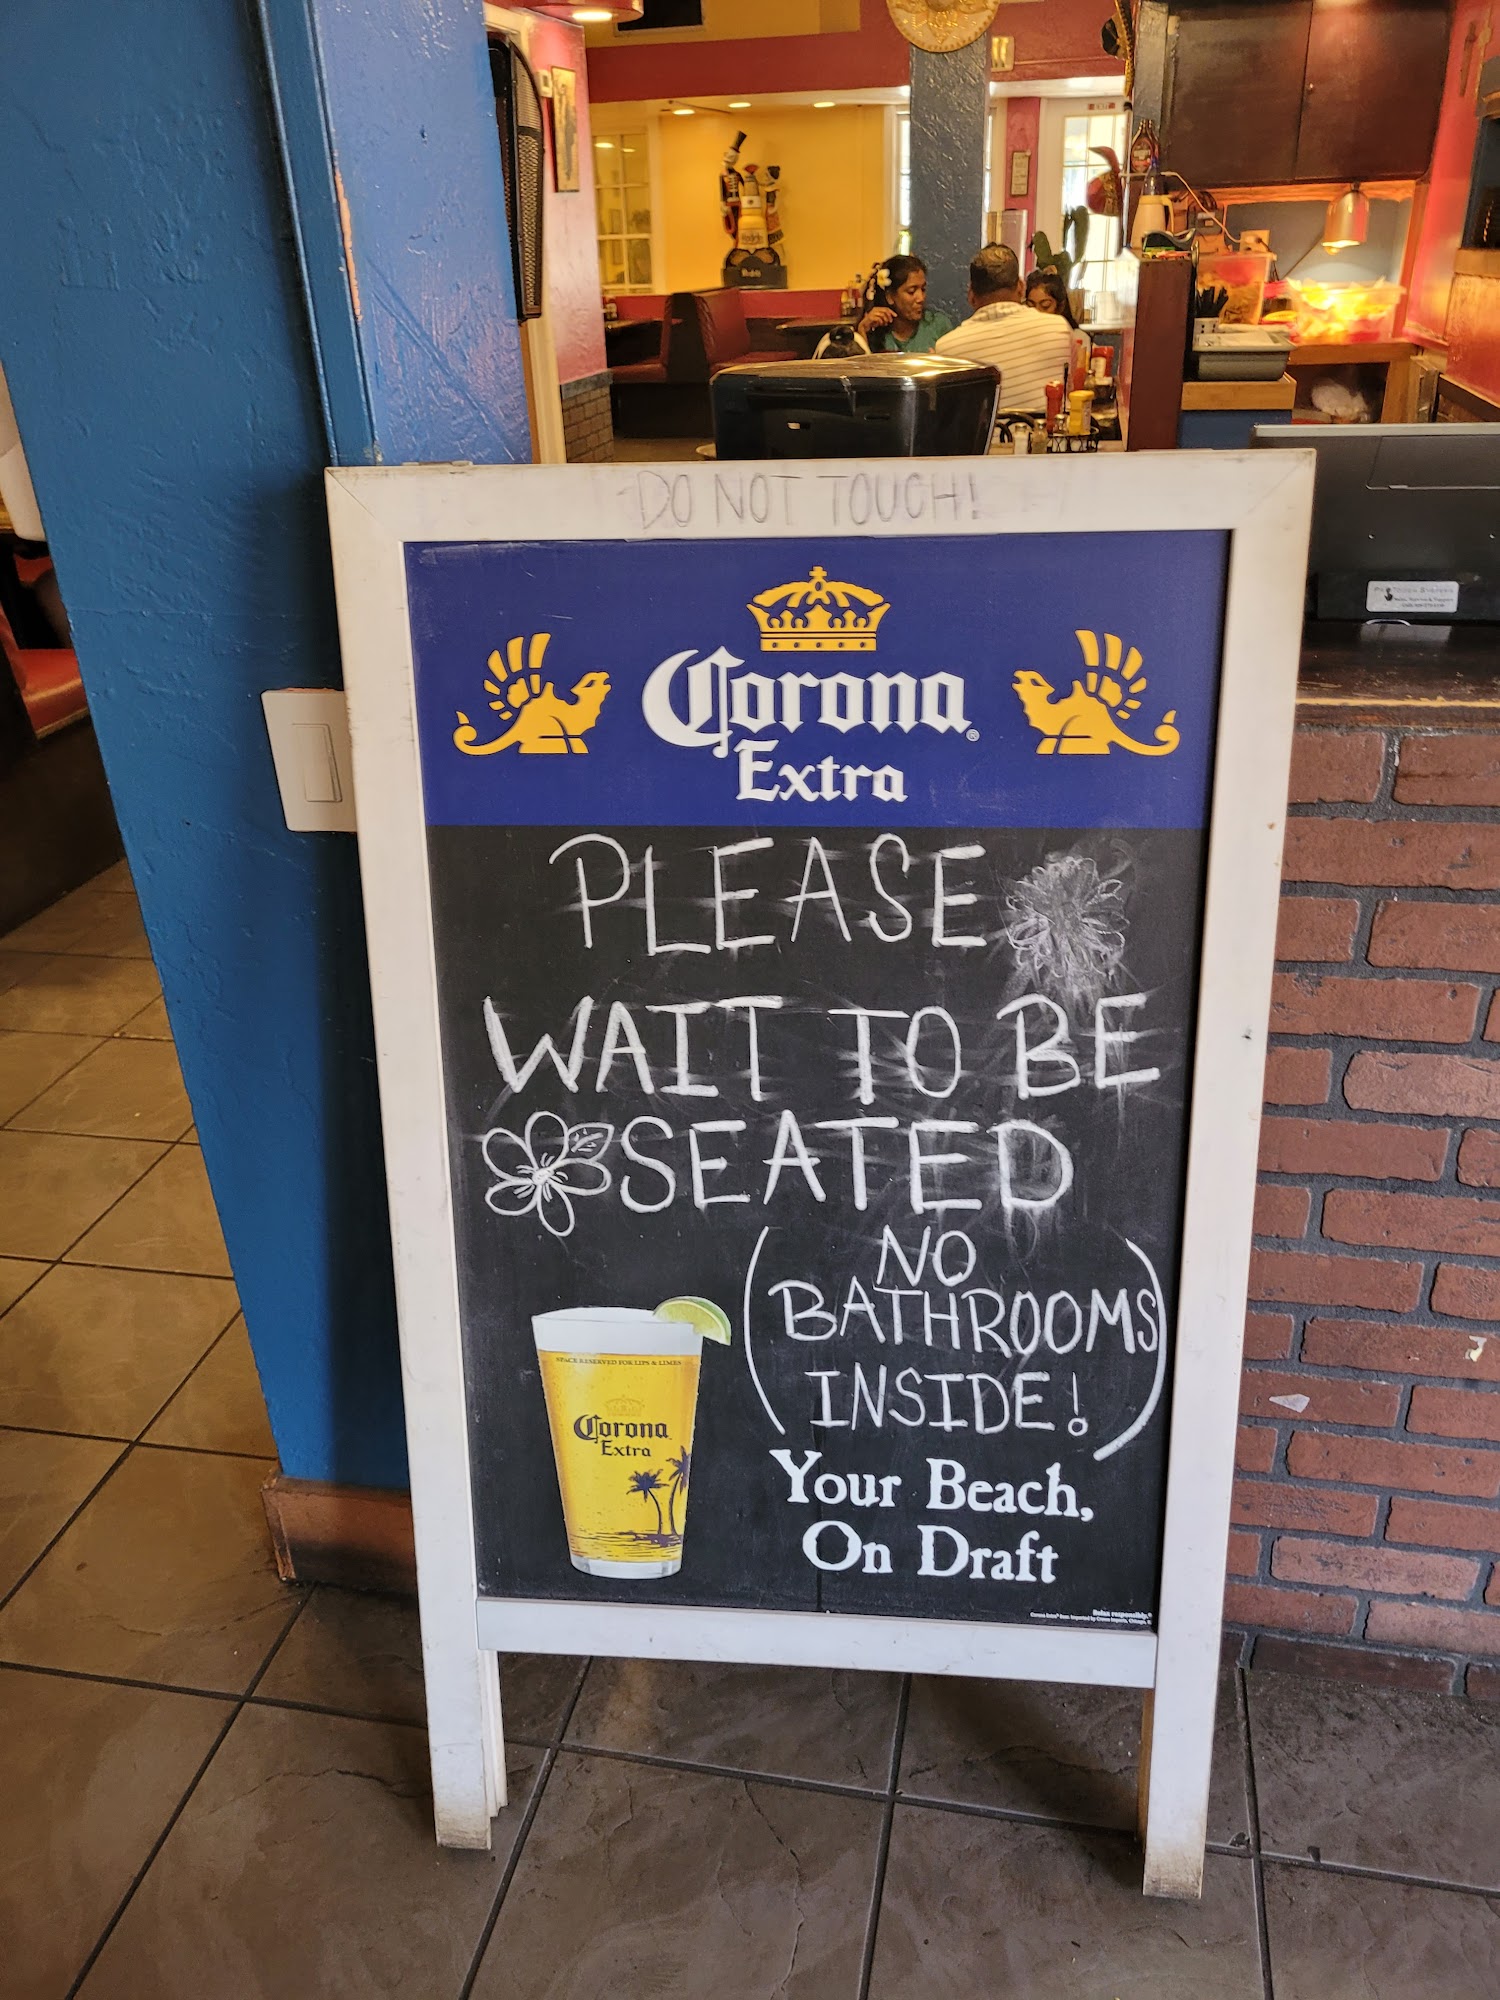 DO NOT TOUCH!
Corona
Extra
PLEASE
WAIT TO BE
SEATED
(NO
BATHROOMS
INSIDE!)
SPACE RESERVED FOR LIPS & LIMES
Corona
Extra
Your Beach,
On Draft
Relax responsibly.®
EXIT